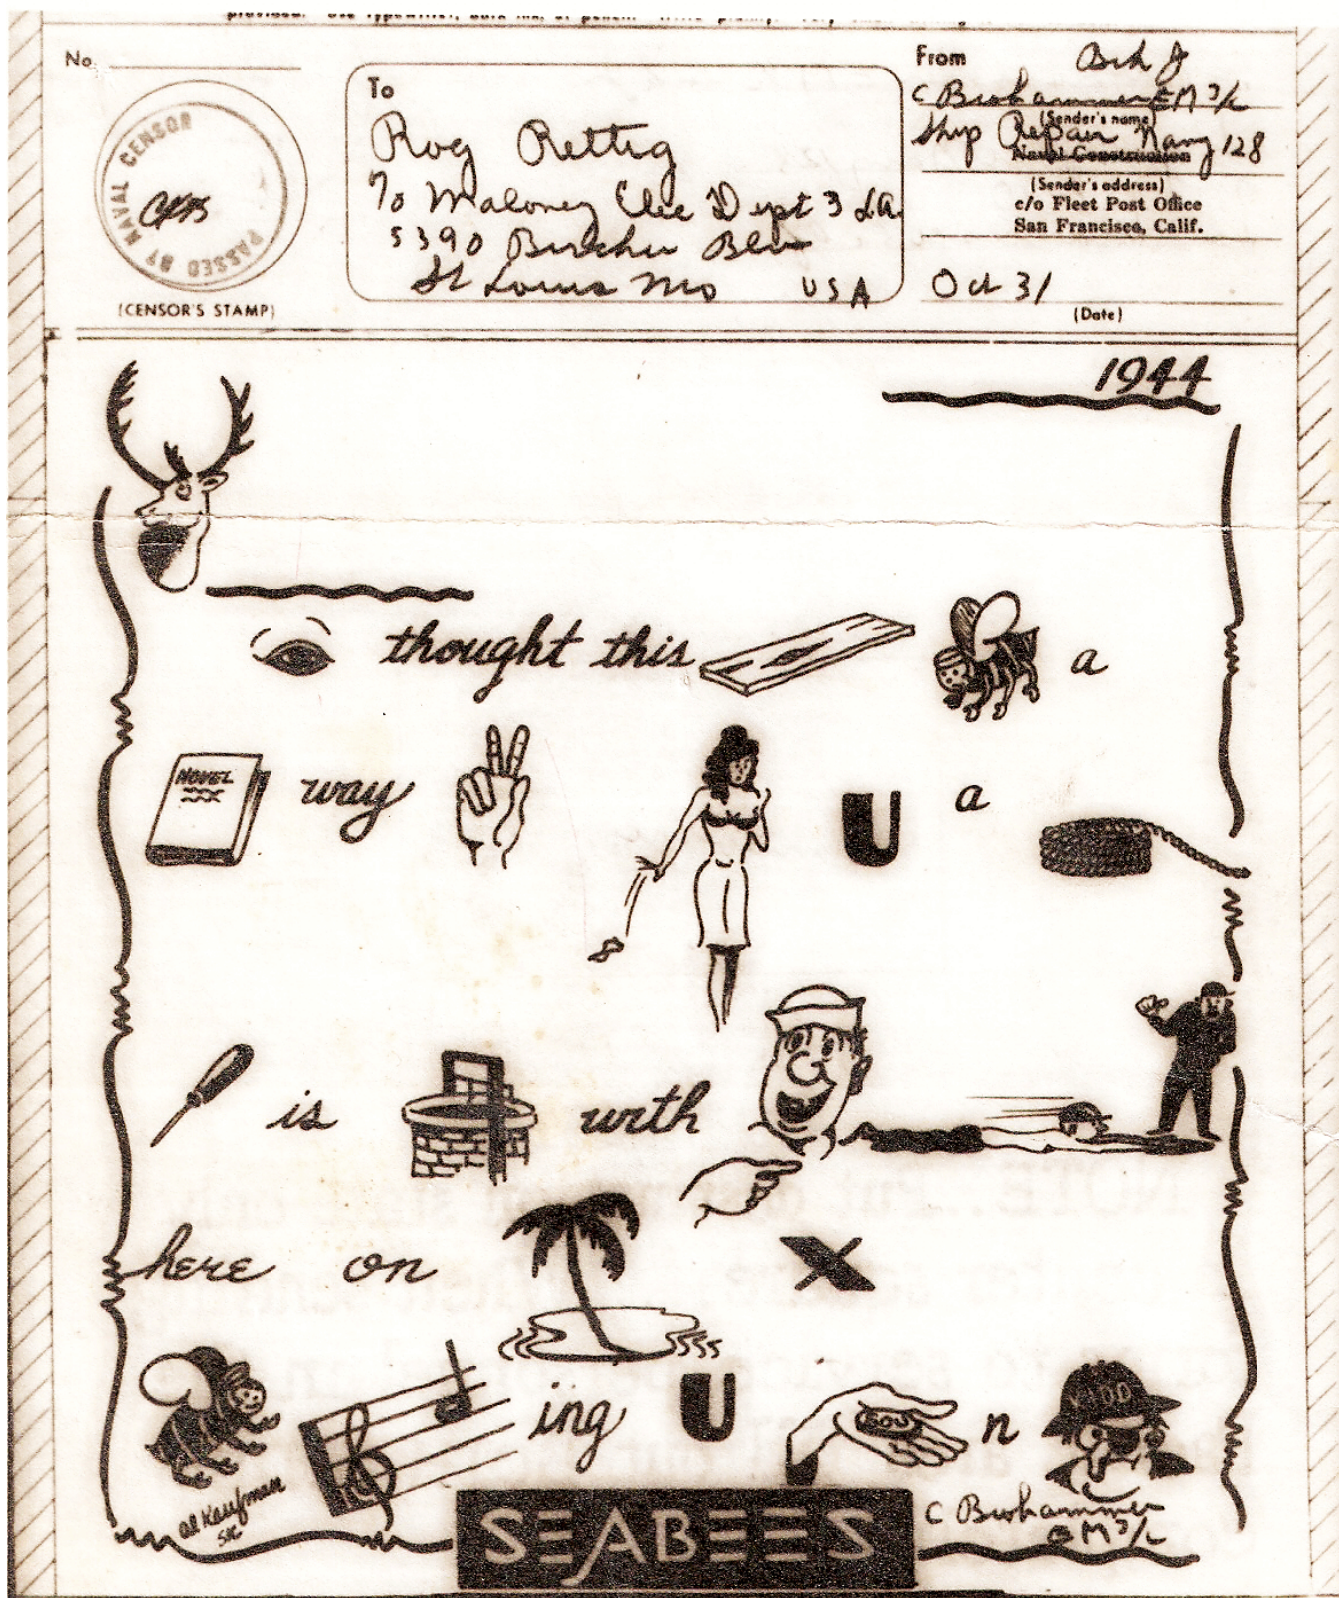 No.
PASSED BY NAVAL CENSOR
(CENSOR'S STAMP)
To
Rog Rettig
% Maloney Elec Dept 3 LA
5390 Bircher Blv
St Louis Mo USA
From
C Brohammer EM 3/c
(Sender's name)
Ship Repair Navy 128
Naval Construction
(Sender's address)
c/o Fleet Post Office
San Francisco, Calif.
Oct 31
(Date)
1944
thought this a
NOVEL way U a
is with
here on X
ing U SOU n KIDD
al Kaufman
SK
C Brohammer
EM 3/c
SEABEES